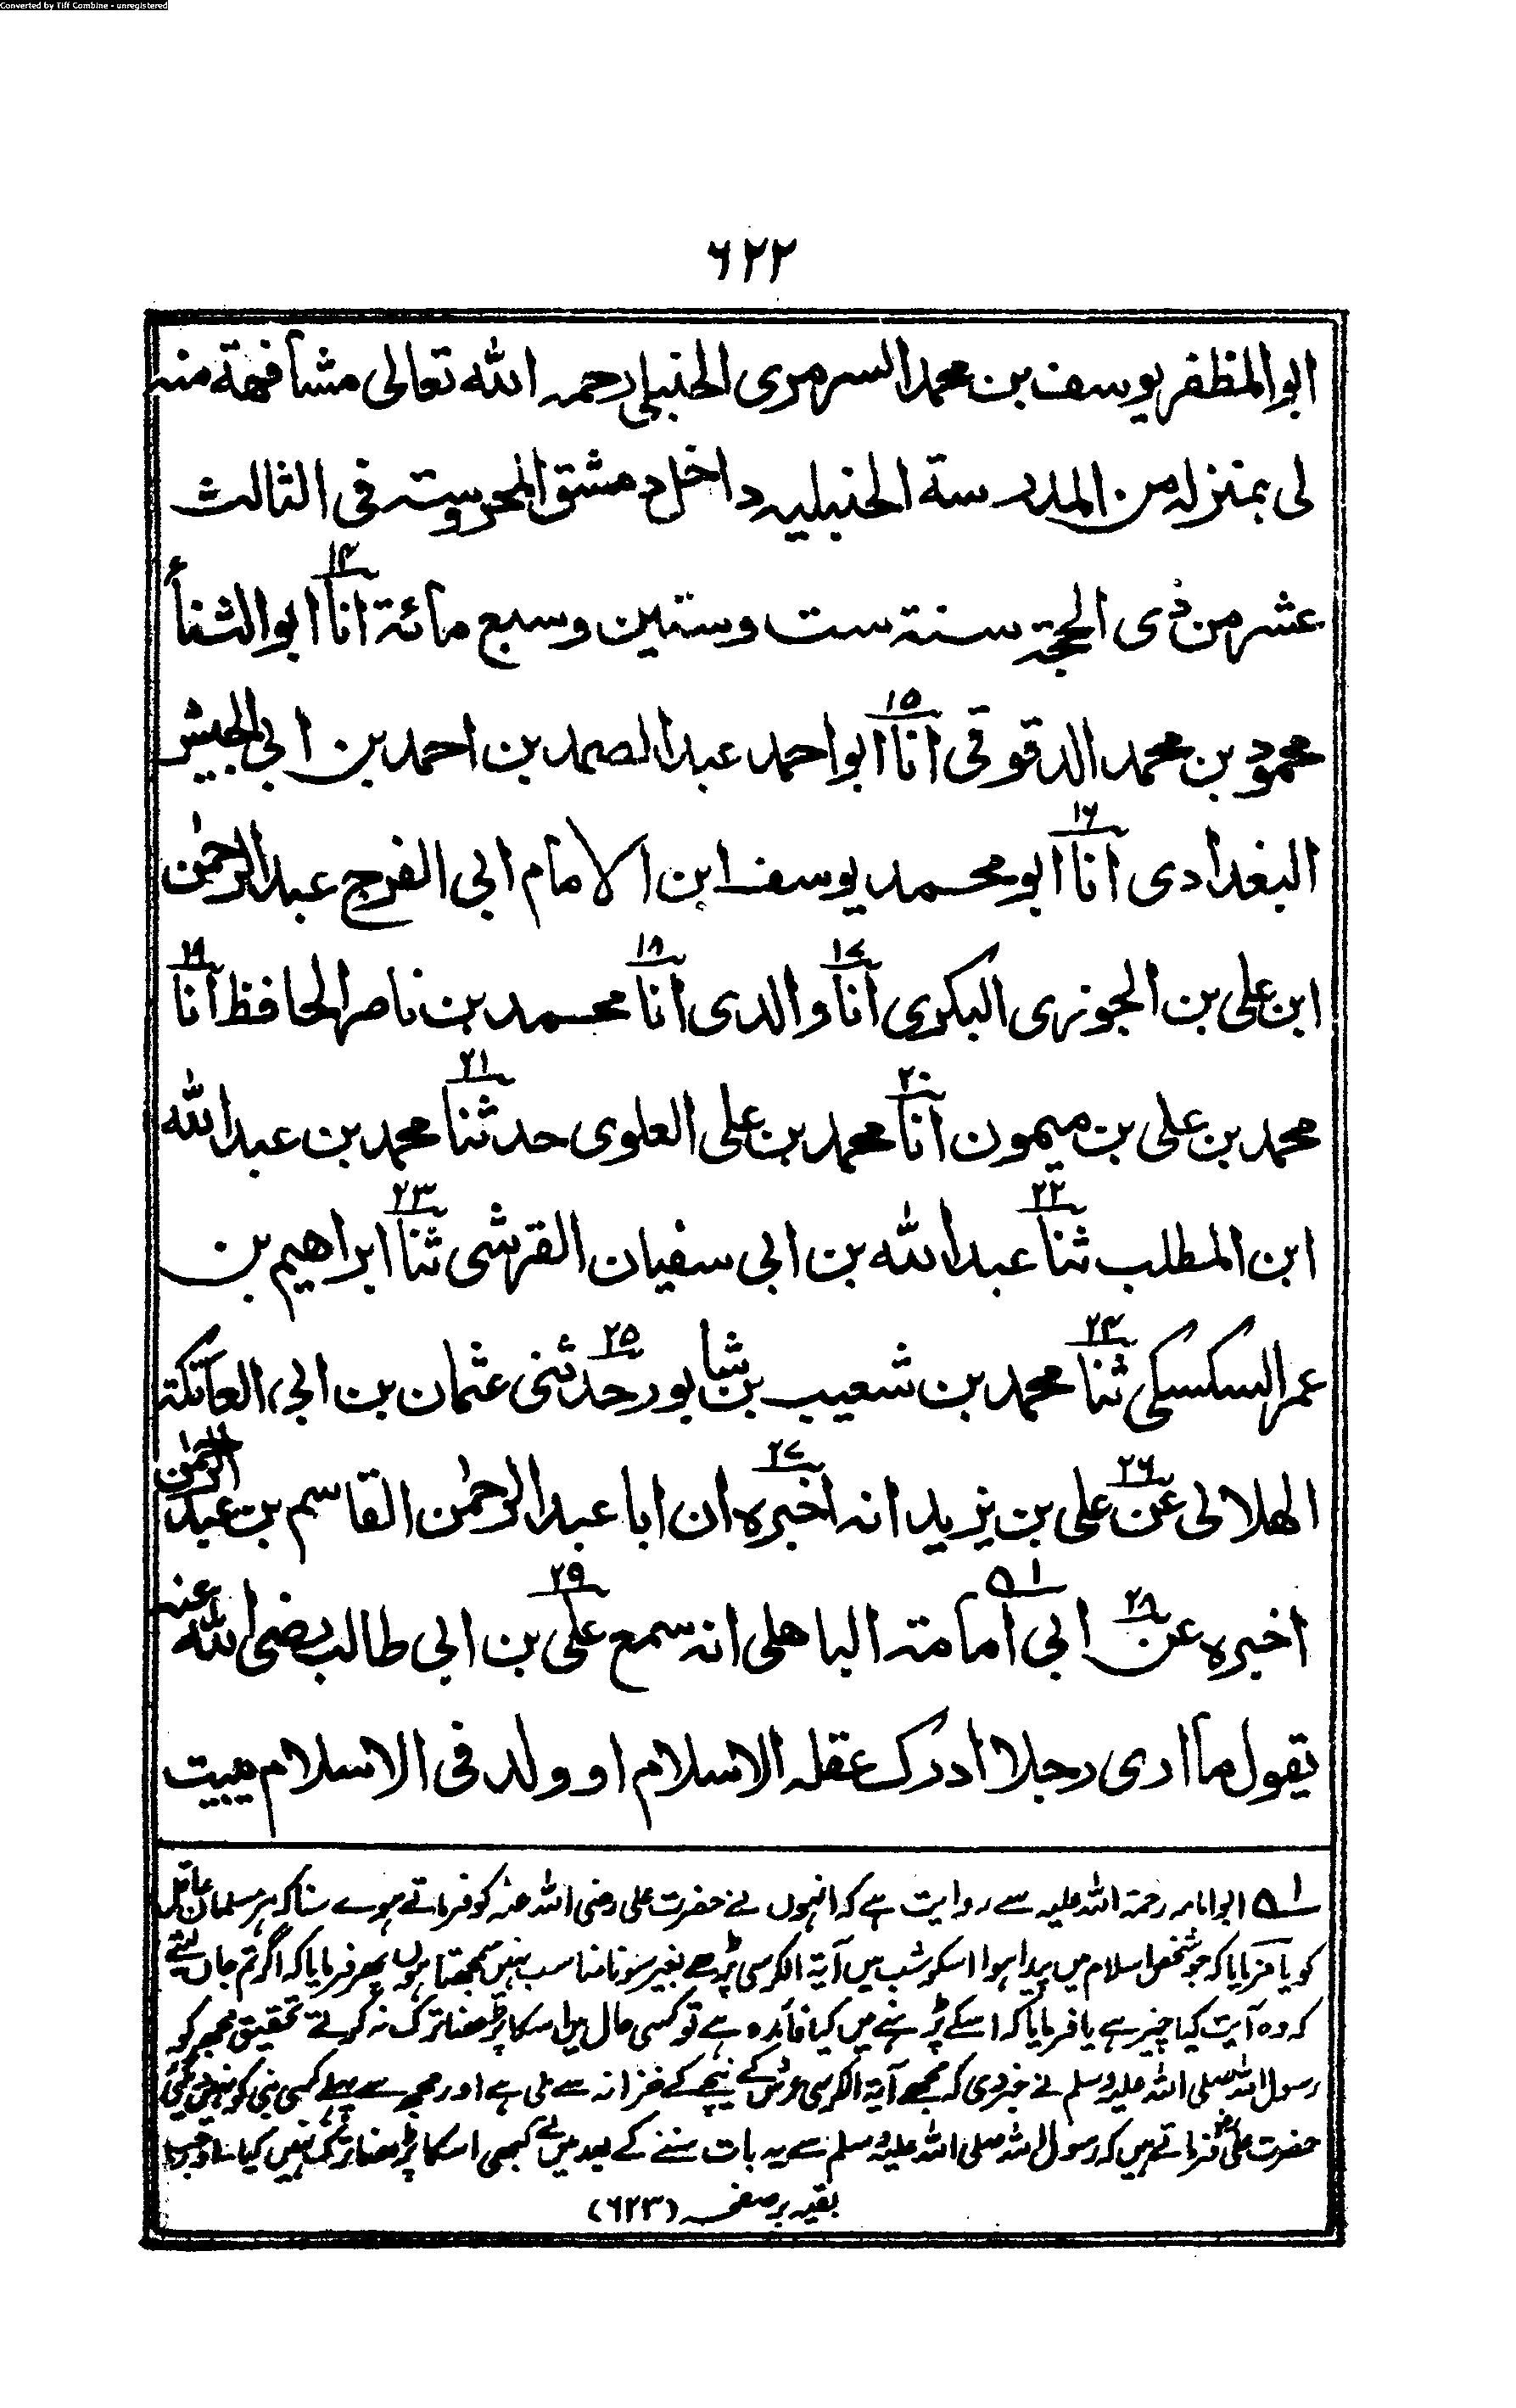 Converted by Tiff Combine - unregistered
٦٢٢
ابوالمظفر يوسف بن محمد السرمرى الحنبلى رحمه الله تعالى مشافهة منه
لى بمنزله من المدرسة الحنبليه داخل دمشق المحروسته فى الثالث
عشر من ذى الحجة سنة ست وستين وسبع مائة انا ١٤ ابو الثناء
محمود بن محمد الدقوقى انا ١٥ ابو احمد عبد الصمد بن احمد بن ابى الجيش
البغدادى انا ١٦ ابو محمد يوسف ابن الامام ابى الفرج عبد الرحمٰن
ابن على بن الجوزى البكرى انا ١٧ والدى انا ١٨ محمد بن ناصر الحافظ انا ١٩
محمد بن على بن ميمون انا ٢٠ محمد بن على العلوى حدثنا ٢١ محمد بن عبد الله
ابن المطلب ثنا ٢٢ عبد الله بن ابى سفيان القرشى ثنا ٢٣ ابراهيم بن
عمر السكسكى ثنا ٢٤ محمد بن شعيب بن شابور حدثنى ٢٥ عثمان بن ابى العاتكة
الهلالى عن ٢٦ على بن يزيد انه اخبره ٢٧ ان ابا عبد الرحمٰن القاسم بن عبد الرحمٰن
اخبره عن ٢٨ ابى امامته ۵۱ الباهلى انه سمع على ٢٩ بن ابى طالب رضى الله عنه
يقول ما ارى رجلا ادرك عقله الاسلام او ولد فى الاسلام يبيت
۵۱ ابوامامہ رحمۃ اللہ علیہ سے روایت ہے کہ انہوں نے حضرت علی رضی اللہ عنہ کو فرماتے ہوے سنا کہ ہر مسلمان عاقل
کو یا فرمایا کہ جو شخص اسلام میں پیدا ہوا اسکو شب میں آیۃ الکرسی پڑھے بغیر سونا مناسب نہیں سمجھتا ہوں پھر فرمایا کہ اگر تم جان لیتے
کہ وہ آیت کیا چیز ہے یا فرمایا کہ اسکے پڑہنے میں کیا فائدہ ہے تو کسی حال میں اسکا پڑھنا ترک نہ کرتے تحقیق مجھ کو
رسول اللہ صلی اللہ علیہ وسلم نے خبر دی کہ مجھے آیۃ الکرسی عرش کے نیچے کے خزانہ سے ملی ہے اور مجھ سے پہلے کسی نبی کو نہیں دی گئی
حضرت علی فرماتے ہیں کہ رسول اللہ صلی اللہ علیہ وسلم سے یہ بات سننے کے بعد میں نے کبھی اسکا پڑھنا ترک نہیں کیا
بقیہ بر صفحہ (٦٢٣)